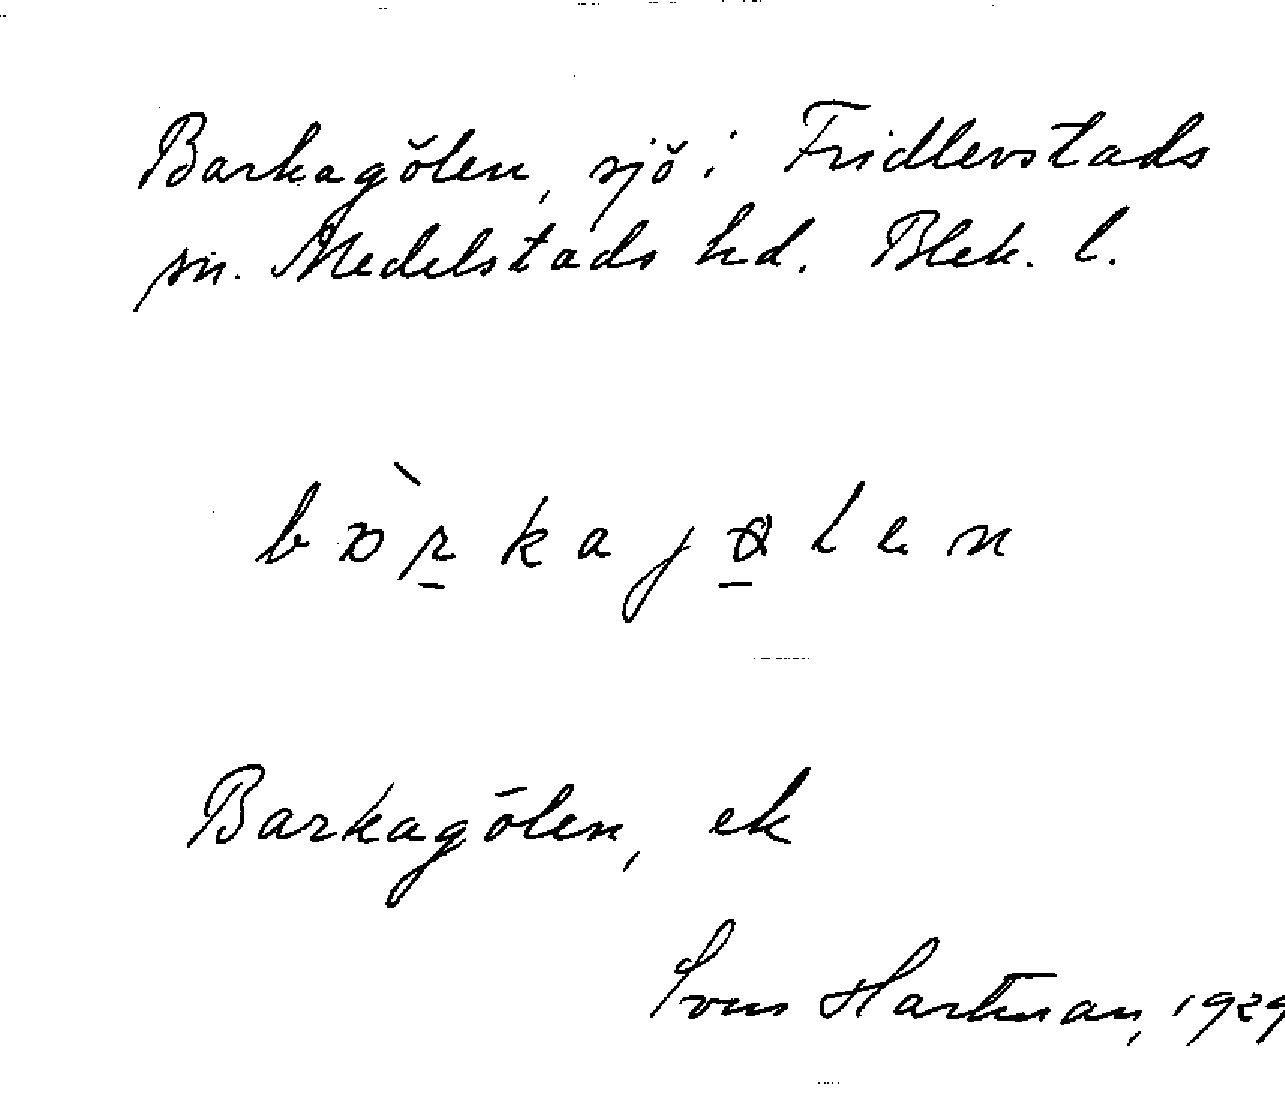 Barkagölen, sjö i Fridlevstads
sn. Medelstads hd. Blek. l.
Barkagölen, ek
Hartman, 1929